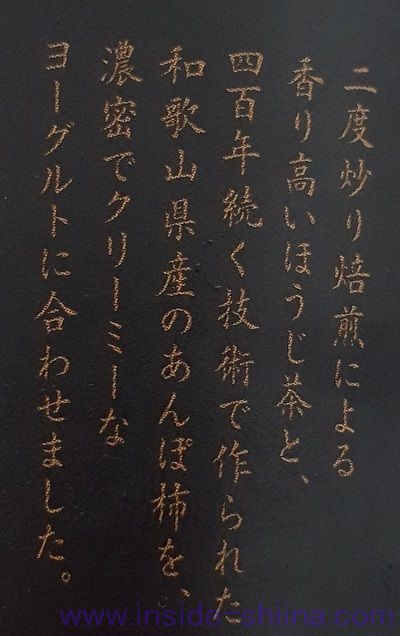 二度炒り焙煎による
香り高いほうじ茶と、
四百年続く技術で作られた
和歌山県産のあんぽ柿を、
濃密でクリーミーな
ヨーグルトに合わせました。
www.inside-shiina.com